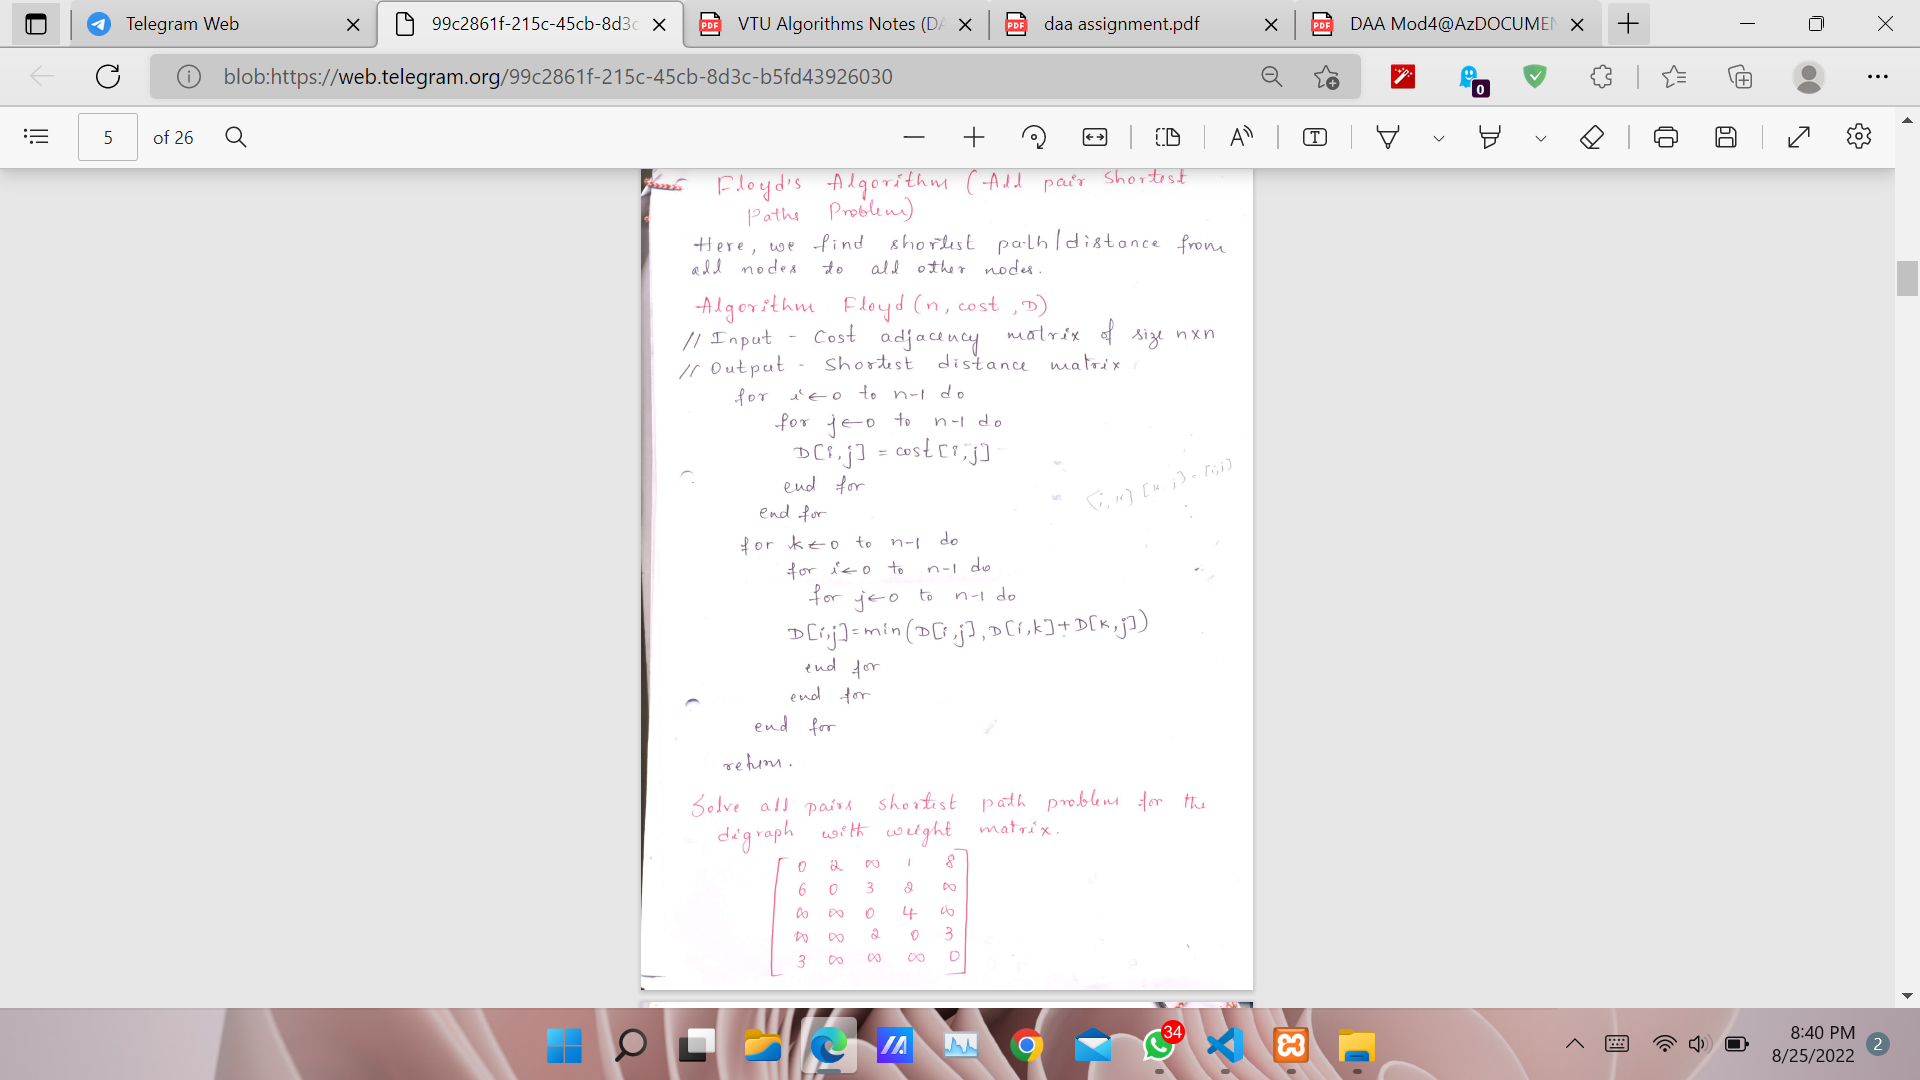 Telegram Web
99c2861f-215c-45cb-8d3c
VTU Algorithms Notes (DA
daa assignment.pdf
DAA Mod4@AzDOCUMEN
blob:https://web.telegram.org/99c2861f-215c-45cb-8d3c-b5fd43926030
0
5 of 26
Floyd's Algorithm (All pair Shortest
Paths Problem)
Here, we find shortest path/distance from
all nodes to all other nodes.
Algorithm Floyd (n, cost, D)
// Input - Cost adjacency matrix of size n×n
// Output - Shortest distance matrix
for i←0 to n-1 do
for j←0 to n-1 do
D[i,j] = cost[i,j]
end for
end for
for k←0 to n-1 do
for i←0 to n-1 do
for j←0 to n-1 do
D[i,j]=min(D[i,j],D[i,k]+D[k,j])
end for
end for
end for
return.
Solve all pairs shortest path problem for the
digraph with weight matrix.
0 2 ∞ 1 8
6 0 3 2 ∞
∞ ∞ 0 4 ∞
∞ ∞ 2 0 3
3 ∞ ∞ ∞ 0
34
8:40 PM
8/25/2022
2